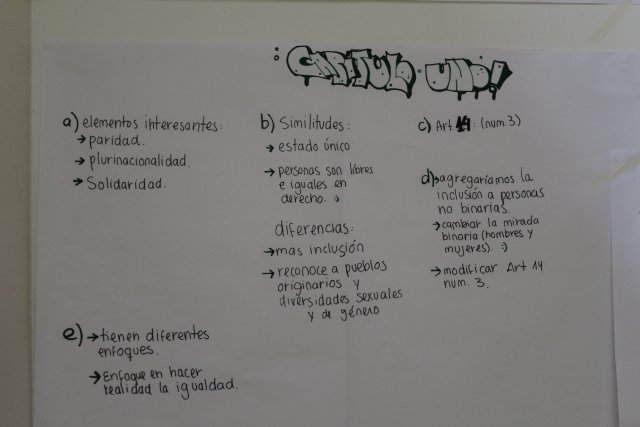 : CAPITULO UNO!
a) elementos interesantes:
→ paridad.
→ plurinacionalidad.
→ Solidaridad.
b) Similitudes:
→ estado único
→ personas son libres
e iguales en
derecho. :)
diferencias:
→ mas inclusión
→ reconoce a pueblos
originarios y
diversidades sexuales
y de género
c) Art 14: (num. 3)
d)→ agregaríamos la
inclusión a personas
no binarias.
→ cambiar la mirada
binaria (hombres y
mujeres). :)
→ modificar Art 14
num. 3.
e) → tienen diferentes
enfoques.
→ Enfoque en hacer
realidad la igualdad.